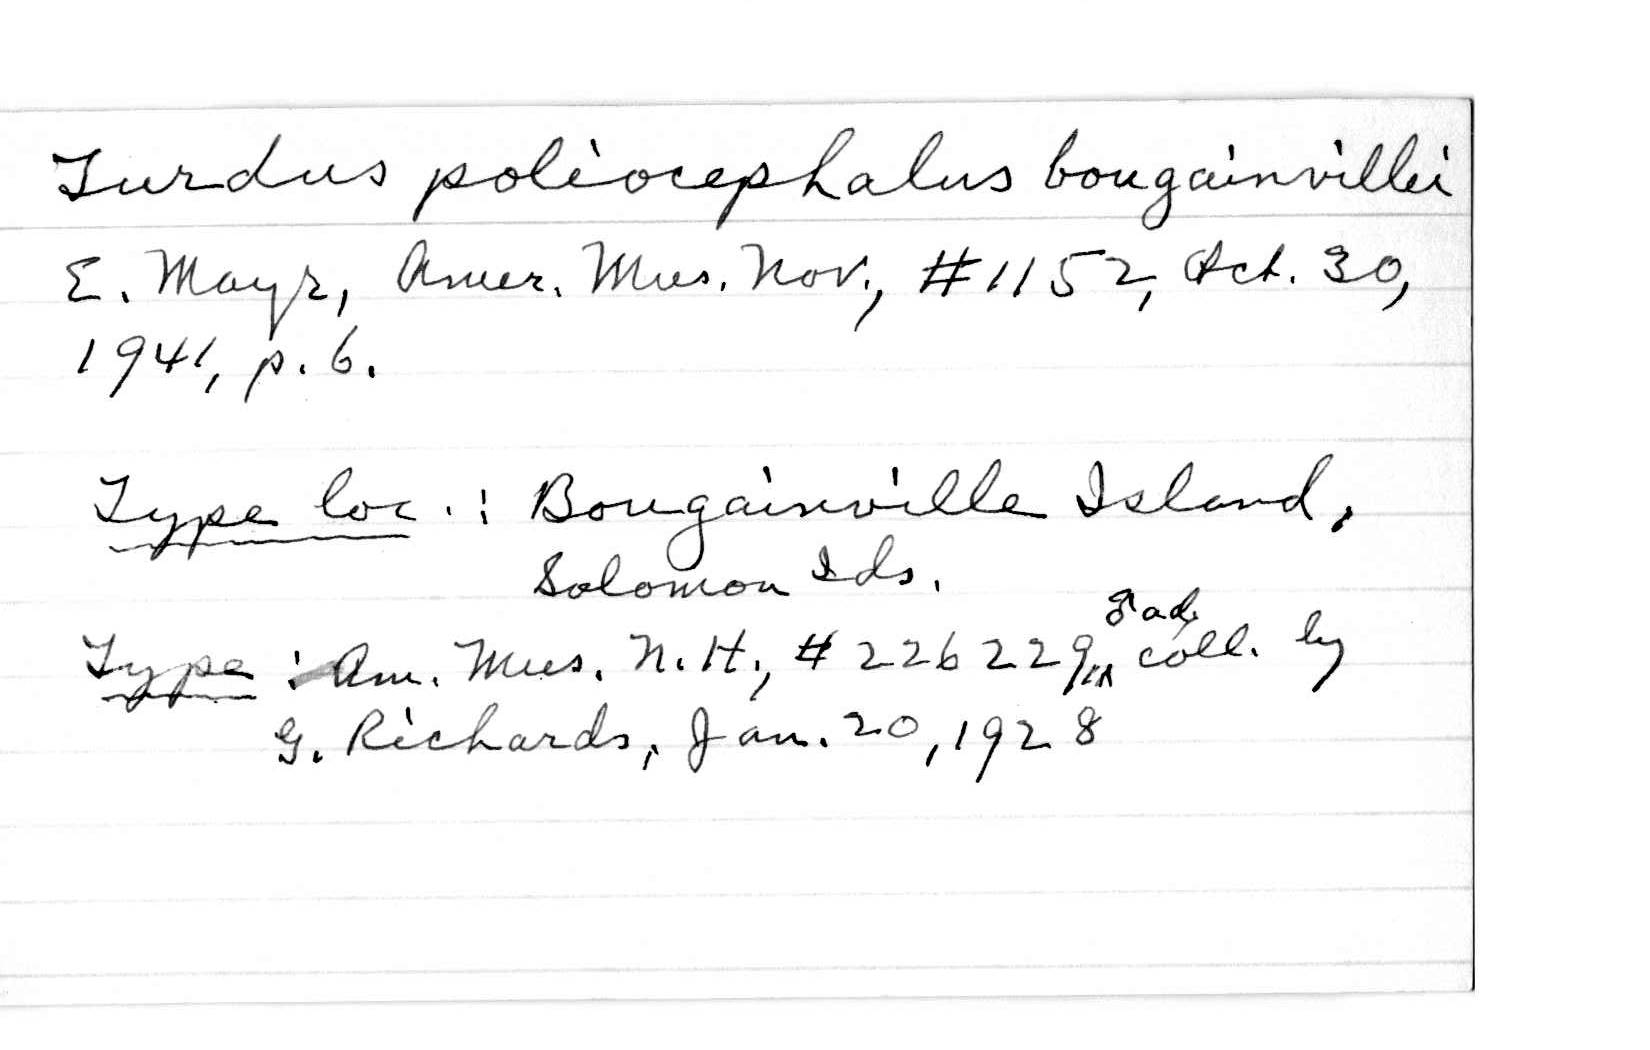 Turdus poliocephalus bougainvillei
E. Mayr, Amer. Mus. Nov., #1152, Oct. 30,
1941, p. 6.
Type loc.: Bougainville Island,
Solomon Ids.
Type: Am. Mus. N. H., #226229, ♂ ad. coll. by
G. Richards, Jan. 20, 1928